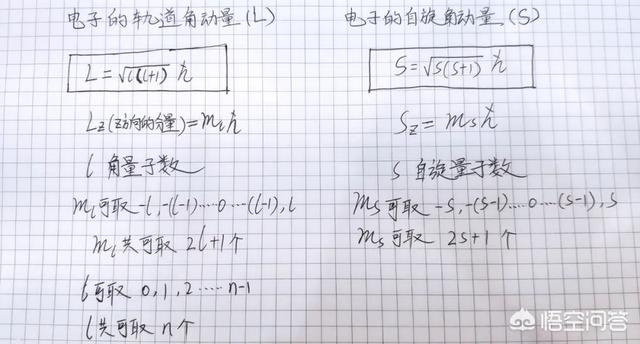 电子的轨道角动量(L)
L=√l(l+1) ħ
Lz(z方向的分量)=mlħ
l 角量子数
ml可取 -l,-(l-1)……0…(l-1),l
ml共可取 2l+1个
l可取 0,1,2……n-1
l共可取 n个
电子的自旋角动量(S)
S=√s(s+1) ħ
Sz=msħ
s 自旋量子数
ms可取 -s,-(s-1)……0…(s-1),s
ms可取 2s+1个
悟空问答